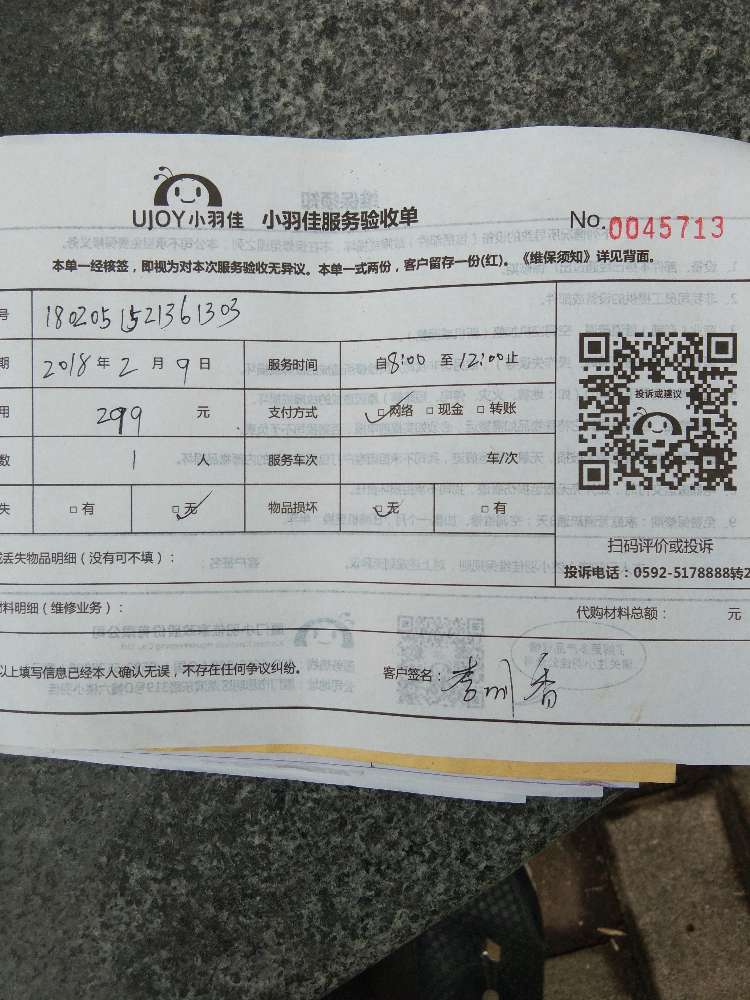 UJOY小羽佳 小羽佳服务验收单 No.0045713
本单一经核签，即视为对本次服务验收无异议。本单一式两份，客户留存一份(红)。《维保须知》详见背面。
号 1802051521361303
期 2018 年 2 月 9 日 服务时间 自8:00 至 12:00止
用 299 元 支付方式 网络 现金 转账
数 1 人 服务车次 车/次
失 有 无 物品损坏 无 有
投诉或建议
扫码评价或投诉
丢失物品明细（没有可不填）： 投诉电话：0592-5178888转2
料明细（维修业务）： 代购材料总额： 元
以上填写信息已经本人确认无误，不存在任何争议纠纷。 客户签名：李川香